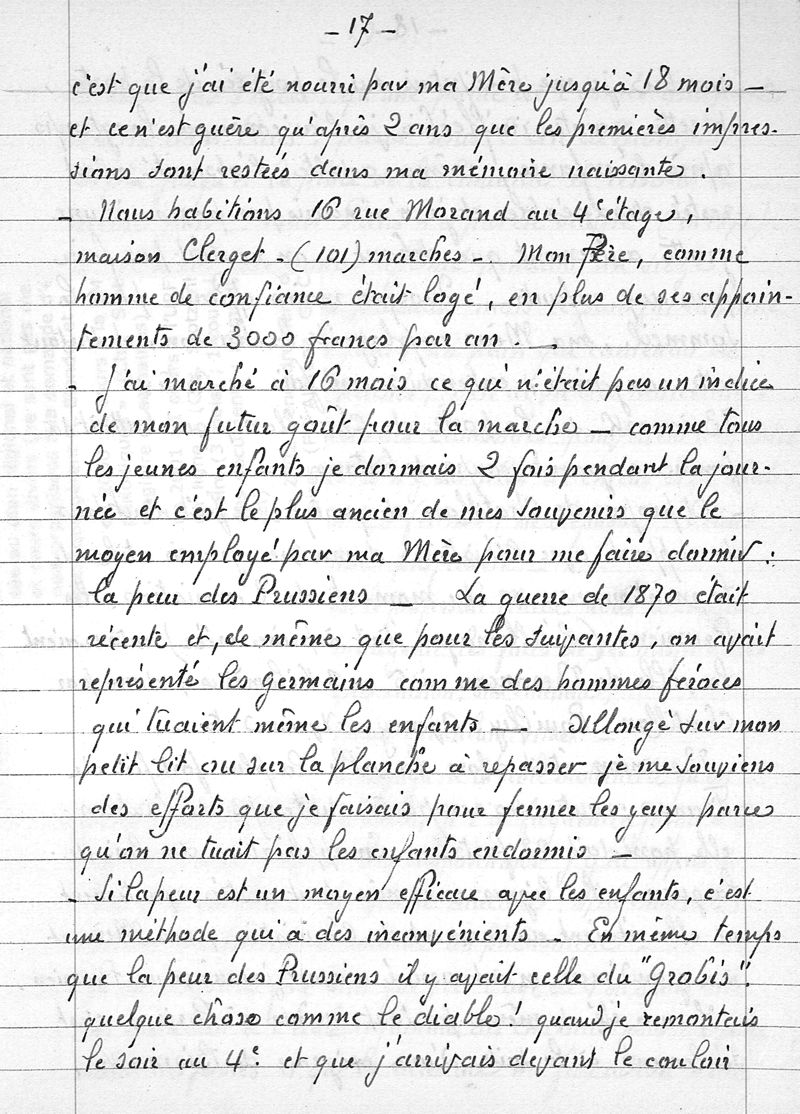 - 17 -
c'est que j'ai été nourri par ma Mère jusqu'à 18 mois -
et ce n'est guère qu'après 2 ans que les premières impres-
sions sont restées dans ma mémoire naissante.
- Nous habitions 16 rue Morand au 4e étage,
maison Clerget - (101) marches -. Mon Père, comme
homme de confiance était logé, en plus de ses appoin-
tements de 3000 francs par an. -
- J'ai marché à 16 mois ce qui n'était pas un indice
de mon futur goût pour la marche - comme tous
les jeunes enfants je dormais 2 fois pendant la jour-
née et c'est le plus ancien de mes souvenirs que le
moyen employé par ma Mère pour me faire dormir :
la peur des Prussiens - La guerre de 1870 était
récente et, de même que pour les suivantes, on avait
représenté les germains comme des hommes féroces
qui tuaient même les enfants - Allongé sur mon
petit lit ou sur la planche à repasser je me souviens
des efforts que je faisais pour fermer les yeux parce
qu'on ne tuait pas les enfants endormis -
- Si la peur est un moyen efficace avec les enfants, c'est
une méthode qui a des inconvénients - En même temps
que la peur des Prussiens il y avait celle du "Grobis".
quelque chose comme le diable ! quand je remontais
le soir au 4e. et que j'arrivais devant le couloir